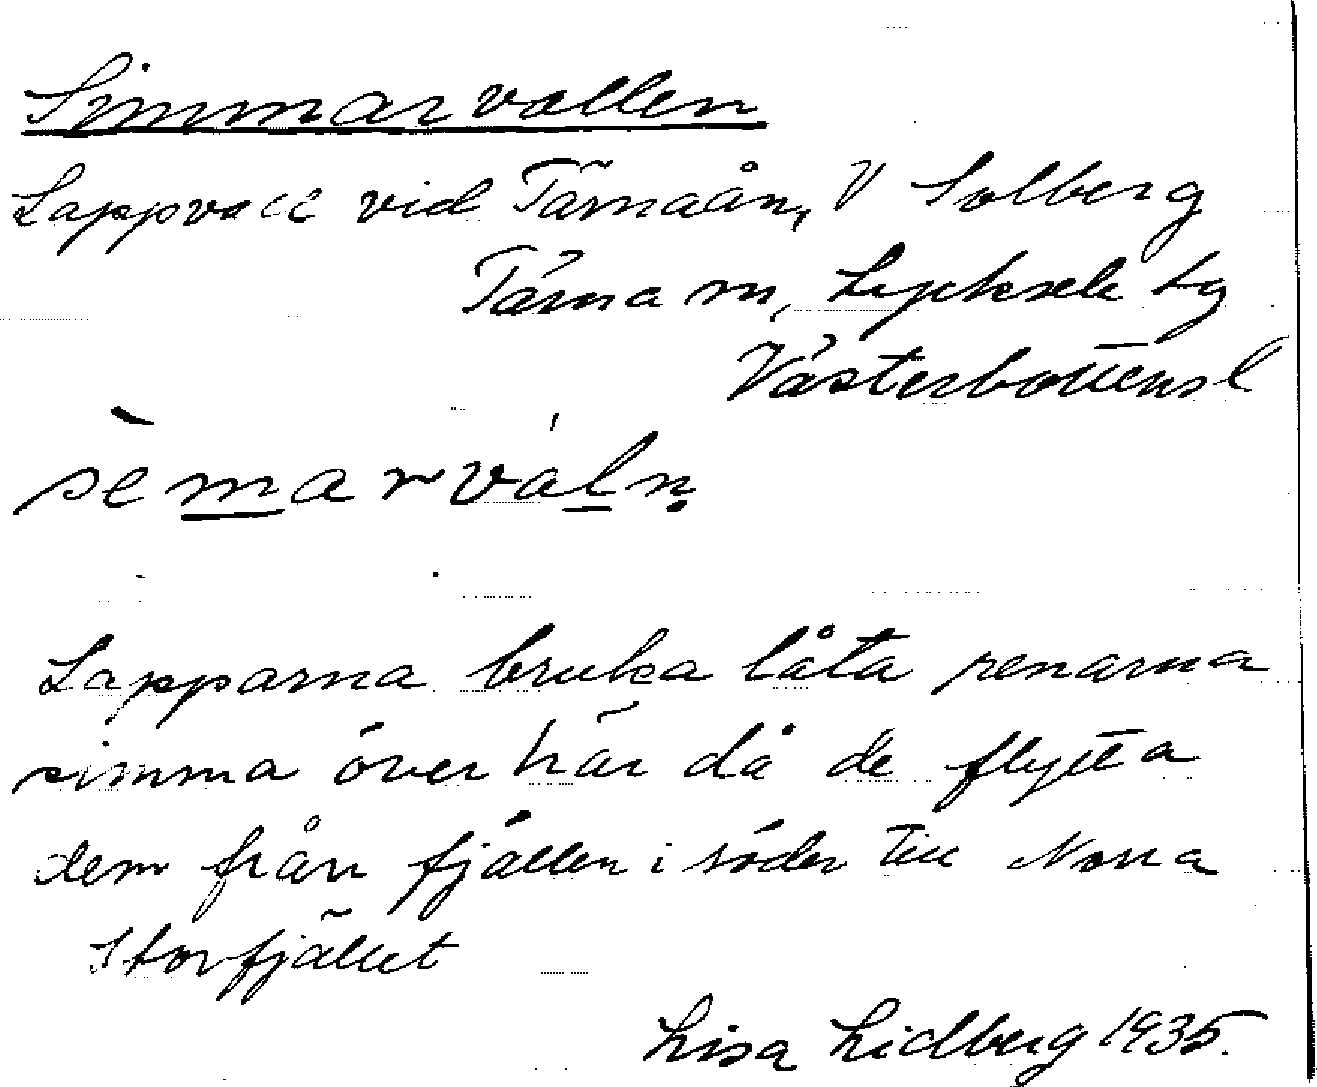 Simmarvallen
Lappvall vid Tärnaån, V Solberg
Tärna sn, Lycksele tg
Västerbottens l
sèmarváln̥
Lapparna bruka låta renarna
simma över här då de flytta
dem från fjällen i söder till Norra
Storfjället
Lisa Lidberg 1935.